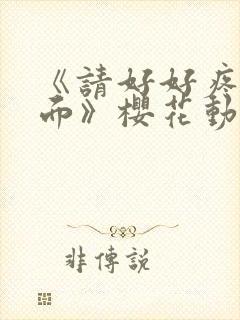 《請好好疼
而》櫻花動
非傳說